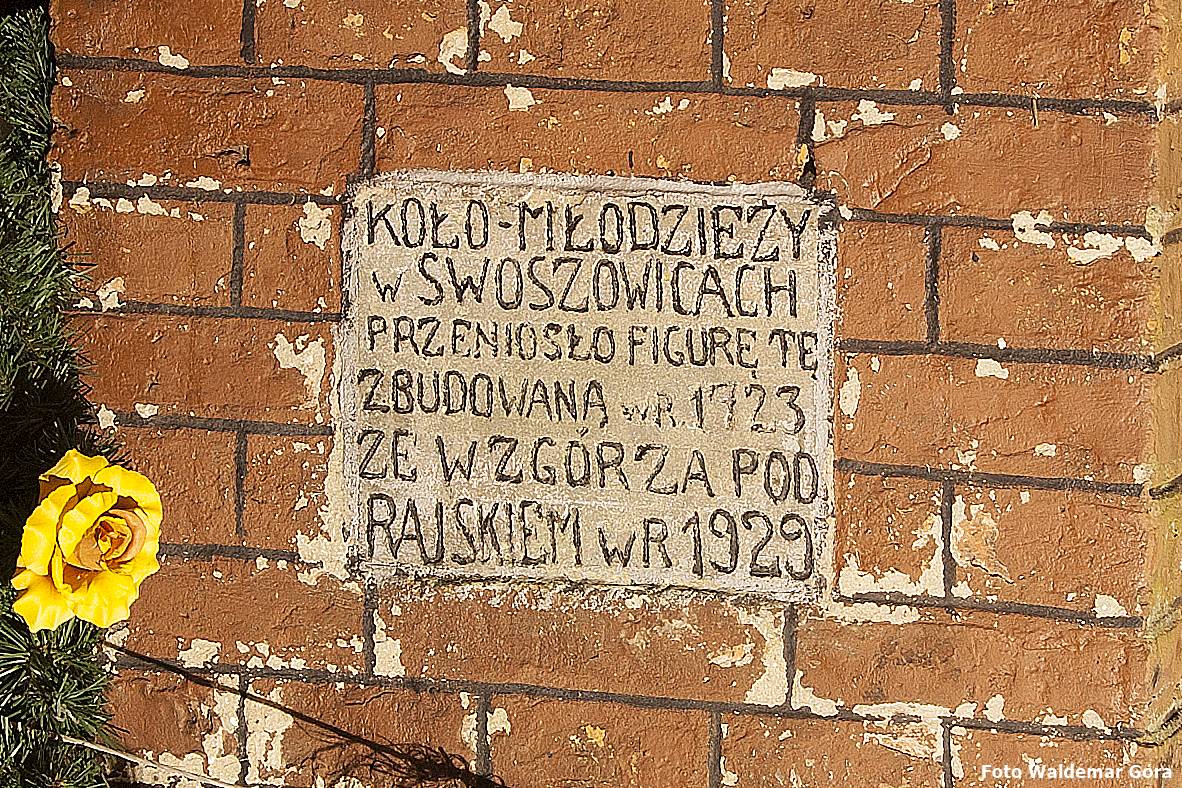 KOŁO-MŁODZIEŻY
W SWOSZOWICACH
PRZENIOSŁO FIGURĘ TĘ
ZBUDOWANĄ W R. 1723
ZE WZGÓRZA POD
RAJSKIEM W R 1929
Foto Waldemar Góra